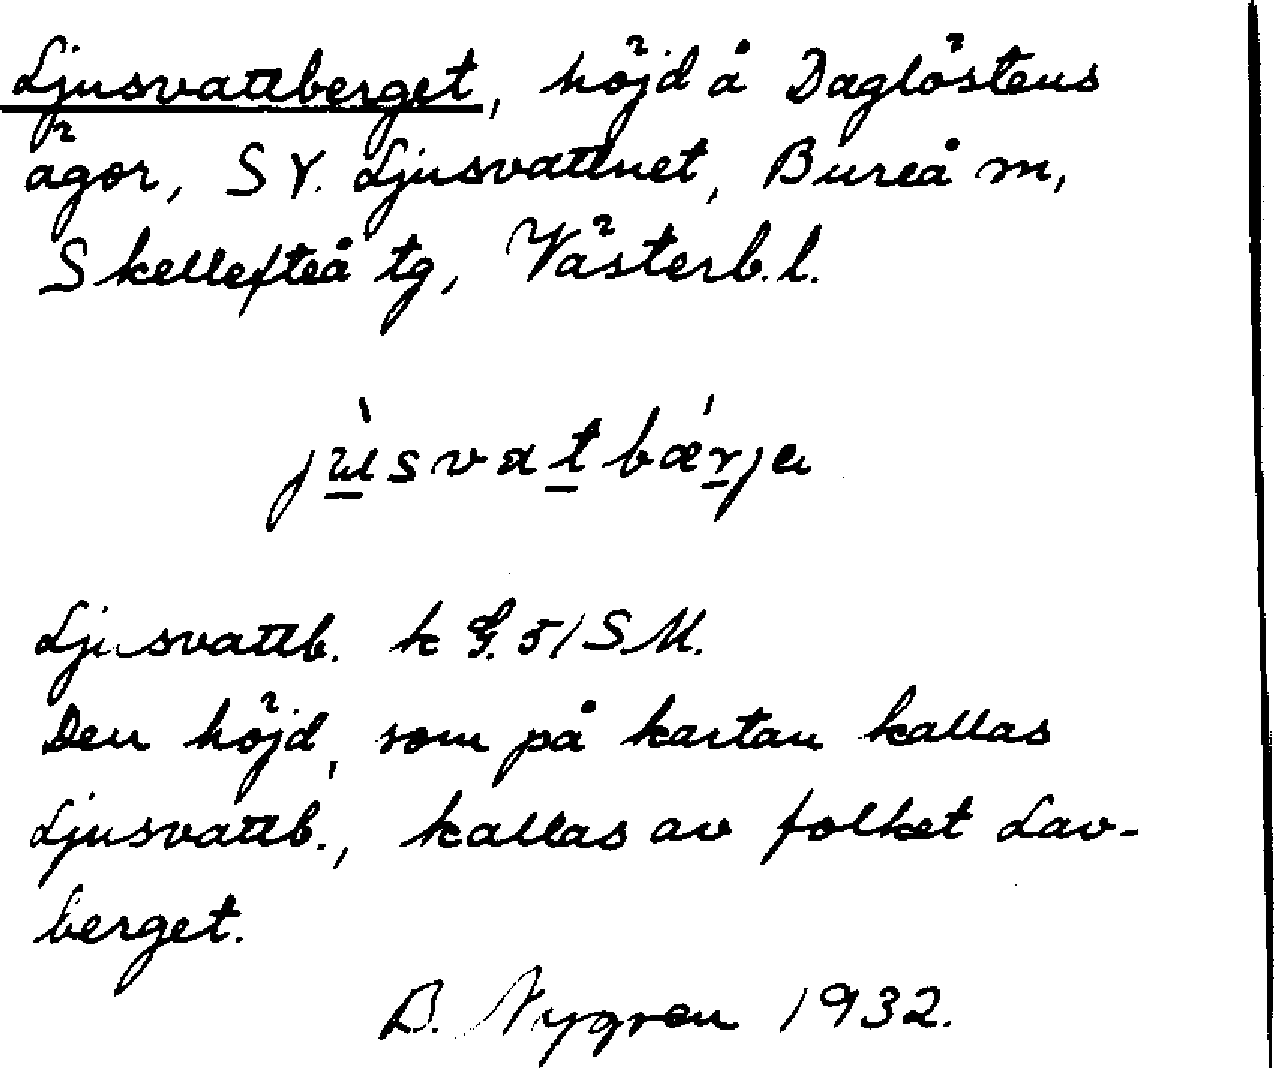 Ljusvattberget, höjd å Daglöstens
ägor, SV. Ljusvattnet, Bureå m,
Skellefteå tg, Västerb. l.
jùsvatbǽrja
Ljusvattb. k G. 51 S.M.
Den höjd, som på kartan kallas
Ljusvattb., kallas av folket Lav-
berget.
B. Nygren 1932.